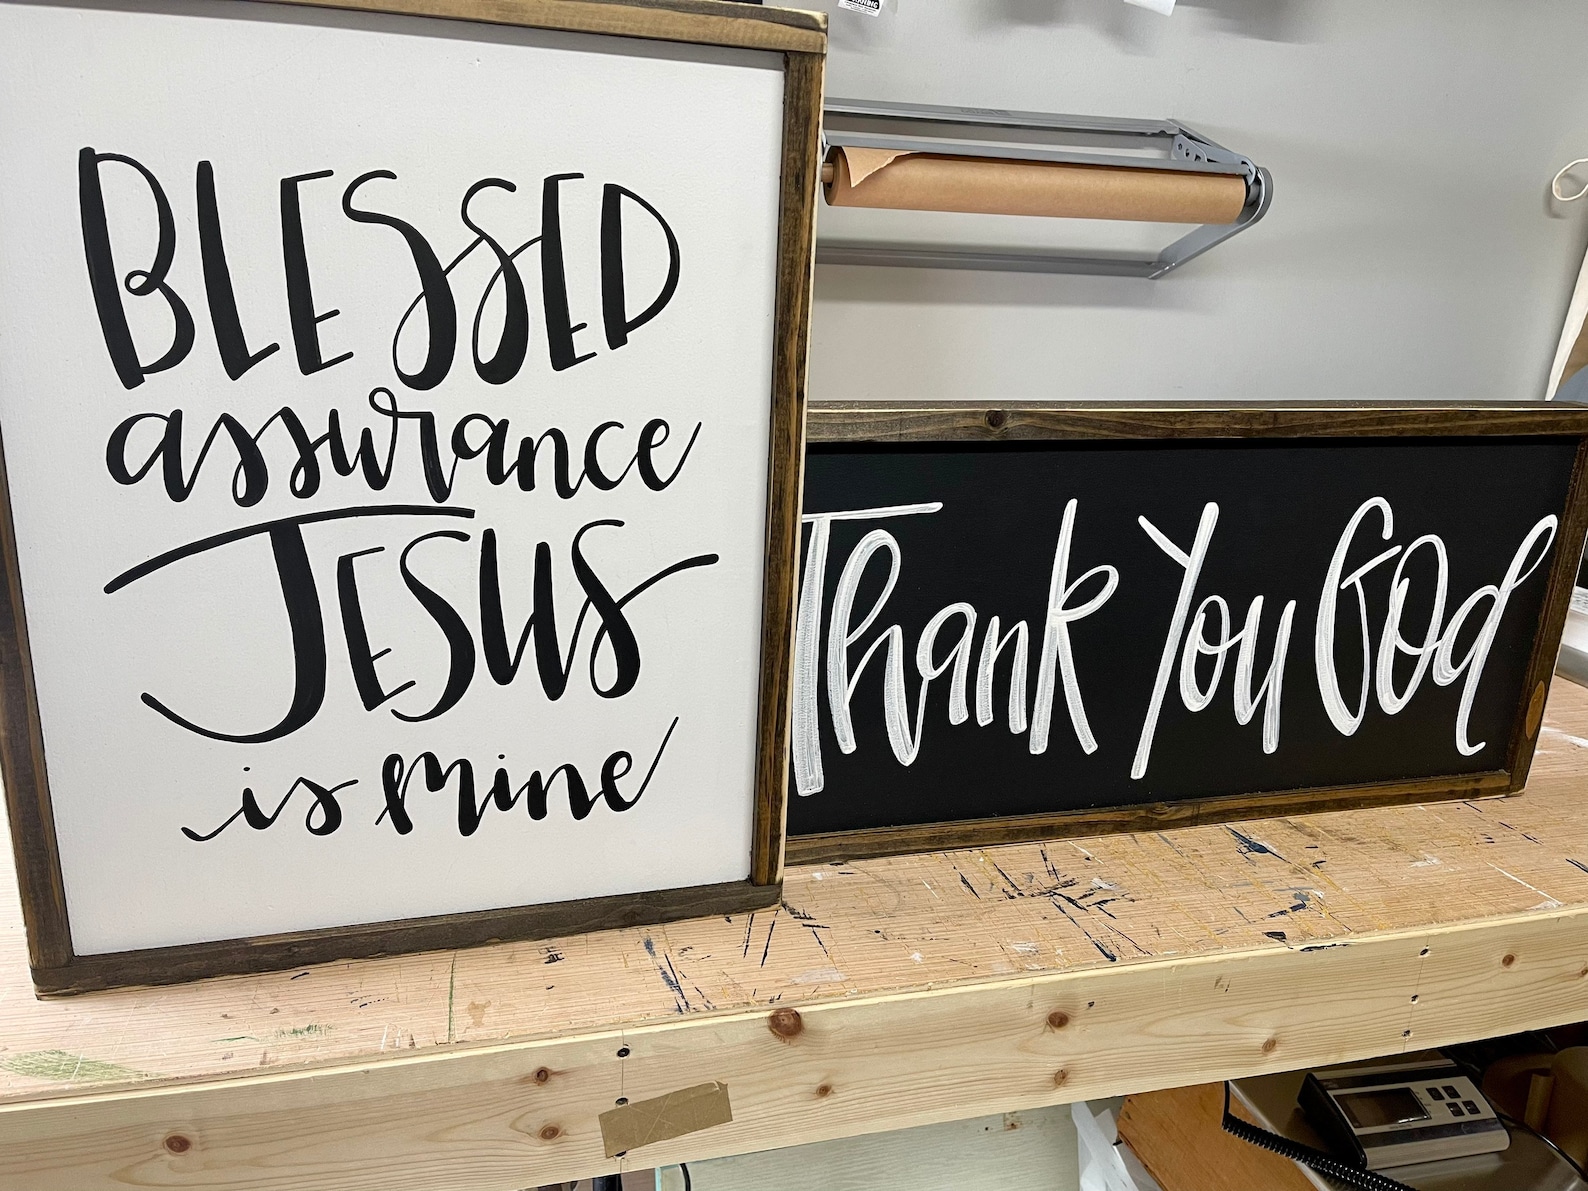 BLESSED
assurance
JESUS
is mine
Thank You God